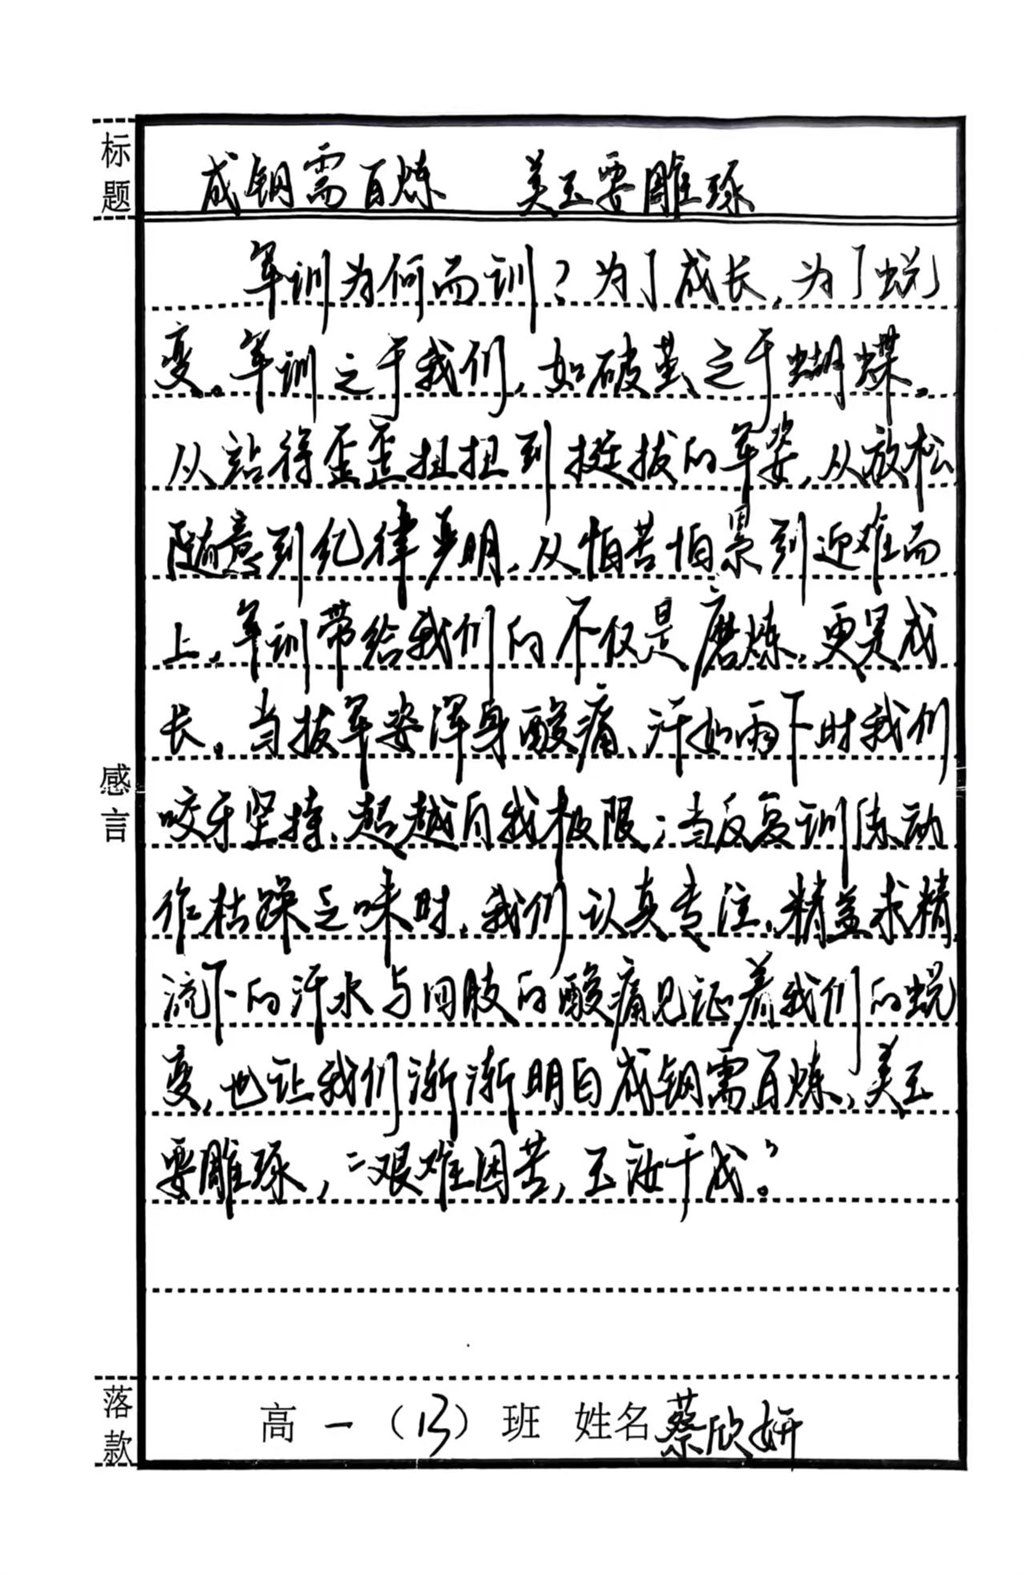 标题
成钢需百炼 美玉要雕琢
军训为何而训？为了成长，为了蜕
变。军训之于我们，如破茧之于蝴蝶。
从站得歪歪扭扭到挺拔的军姿，从放松
随意到纪律严明，从怕苦怕累到迎难而
上，军训带给我们的不仅是磨炼，更是成
长。当拔军姿浑身酸痛、汗如雨下时我们
咬牙坚持、超越自我极限；当反复训练动
作枯躁乏味时，我们认真专注，精益求精
流下的汗水与四肢的酸痛见证着我们的蜕
变，也让我们渐渐明白成钢需百炼，美玉
要雕琢，“艰难困苦，玉汝于成”。
感言
落款
高一（13）班 姓名 蔡欣妍